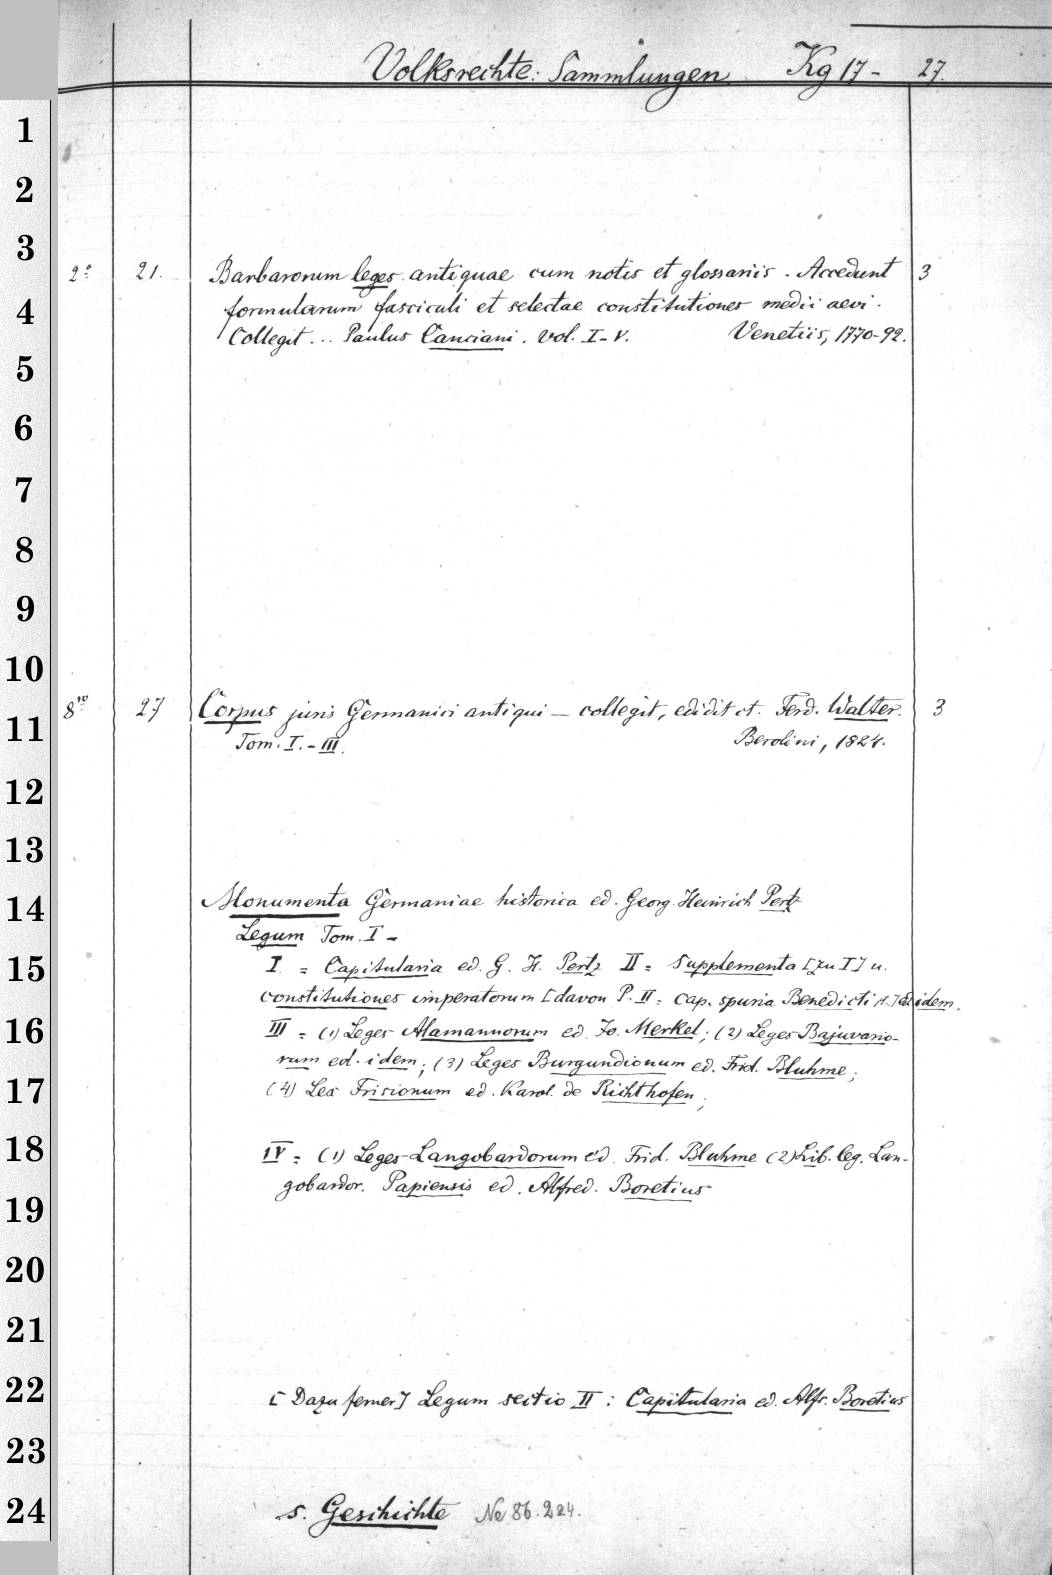 Volksrechte: Sammlungen. Kg 17- 27.
1
2
3
2º 21. Barbarorum leges antiquae cum notis et glossariis. Accedunt 3
4 formularum fasciculi et selectae constitutiones medii aevi.
Collegit... Paulus Canciani. Vol. I-V. Venetiis, 1770-92.
5
6
7
8
9
10
8vo 27 Corpus juris Germanici antiqui — collegit, edidit et. Ferd. Walter. 3
11 Tom. I.-III. Berolini, 1824.
12
13
14 Monumenta Germaniae historica ed. Georg Heinrich Pertz
Legum Tom. I -
15 I. = Capitularia ed. G. H. Pertz II = Supplementa [zu I] u.
constitutiones imperatorum [davon P. II = cap. spuria Benedicti ed idem.
16 III = (1) Leges Alamannorum ed. Jo. Merkel; (2) Leges Bajuvario-
rum ed. idem; (3) Leges Burgundionum ed. Frid. Bluhme;
17 (4) Lex Frisionum ed. Karol. de Richthofen;
18 IV = (1) Leges Langobardorum ed. Frid. Bluhme (2) Lib. leg. Lan-
gobardor. Papiensis ed. Alfred. Boretius
19
20
21
22 [Dazu ferner] Legum sectio II: Capitularia ed. Alfr. Boretius
23
24 s. Geschichte No 86.224.